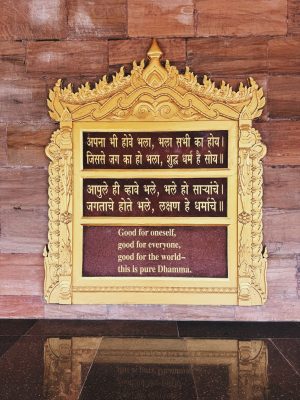 अपना भी होवे भला, भला सभी का होय।
जिससे जग का हो भला, शुद्ध धर्म है सोय॥
आपुले ही व्हावे भले, भले हो साऱ्यांचे।
जगताचे होते भले, लक्षण हे धर्माचे॥
Good for oneself,
good for everyone,
good for the world–
this is pure Dhamma.